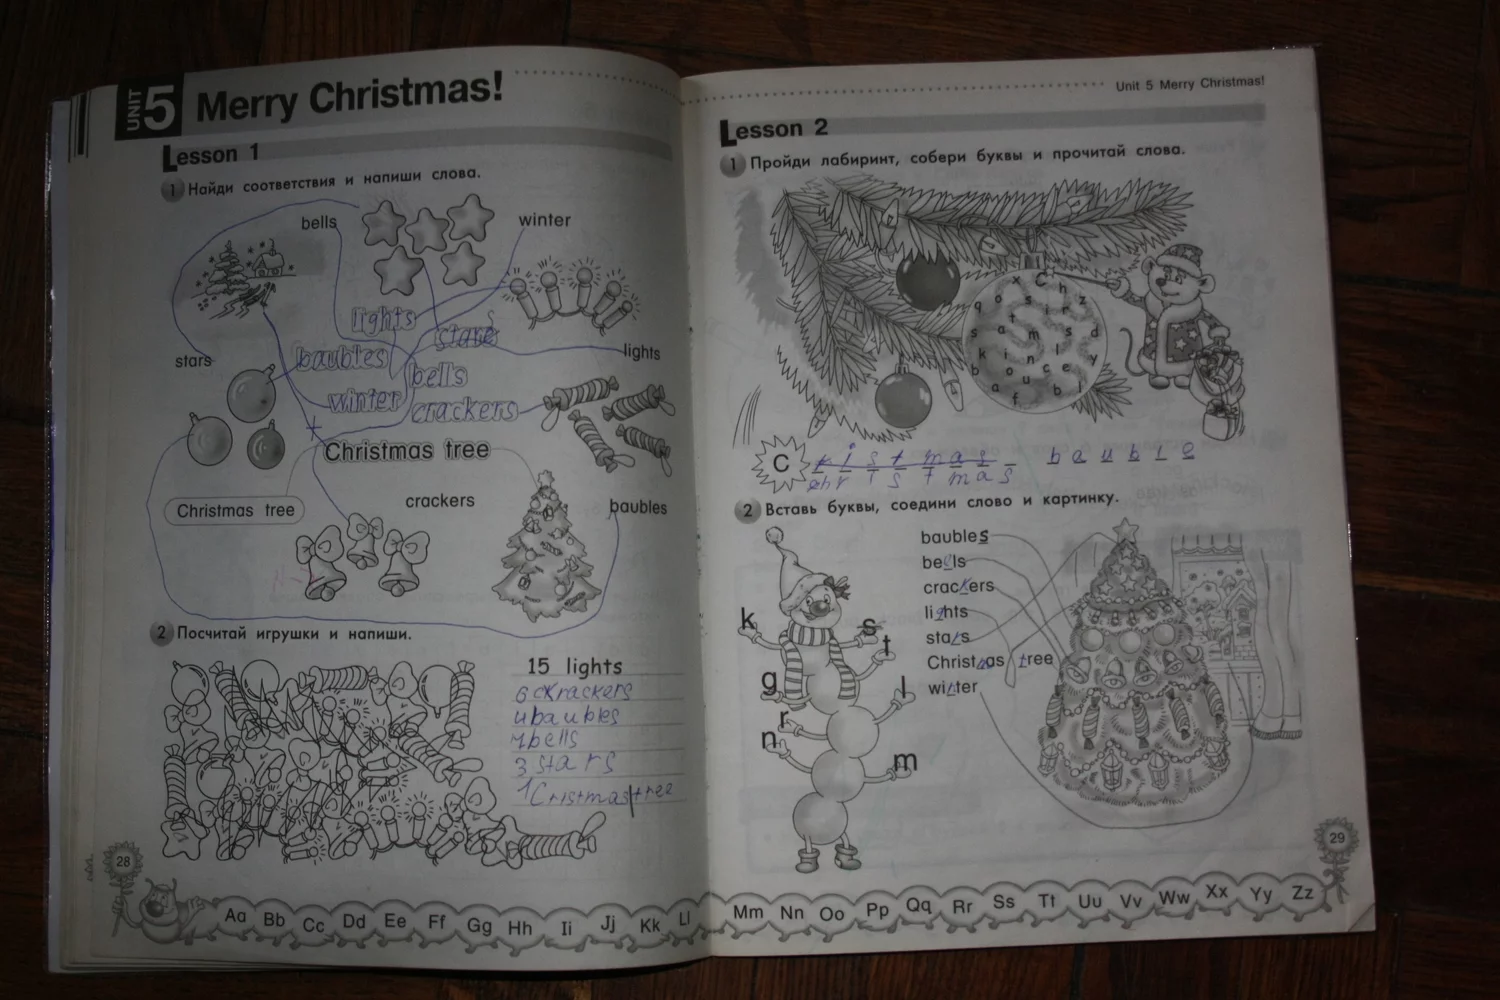 UNIT 5 Merry Christmas!
Lesson 1
1 Найди соответствия и напиши слова.
bells
winter
lights
stars
stars
baubles
lights
bells
winter
crackers
Christmas tree
Christmas tree
crackers
baubles
2 Посчитай игрушки и напиши.
15 lights
6 ckrackers
4 baubles
7 bells
3 stars
1 Cristmas tree
28
Aa Bb Cc Dd Ee Ff Gg Hh Ii Jj Kk Ll
Unit 5 Merry Christmas!
Lesson 2
1 Пройди лабиринт, собери буквы и прочитай слова.
C ristmas bauble
christmas
2 Вставь буквы, соедини слово и картинку.
baubles
bells
crackers
lights
stars
Christmas tree
winter
k
s
t
g
l
r
n
m
29
Mm Nn Oo Pp Qq Rr Ss Tt Uu Vv Ww Xx Yy Zz